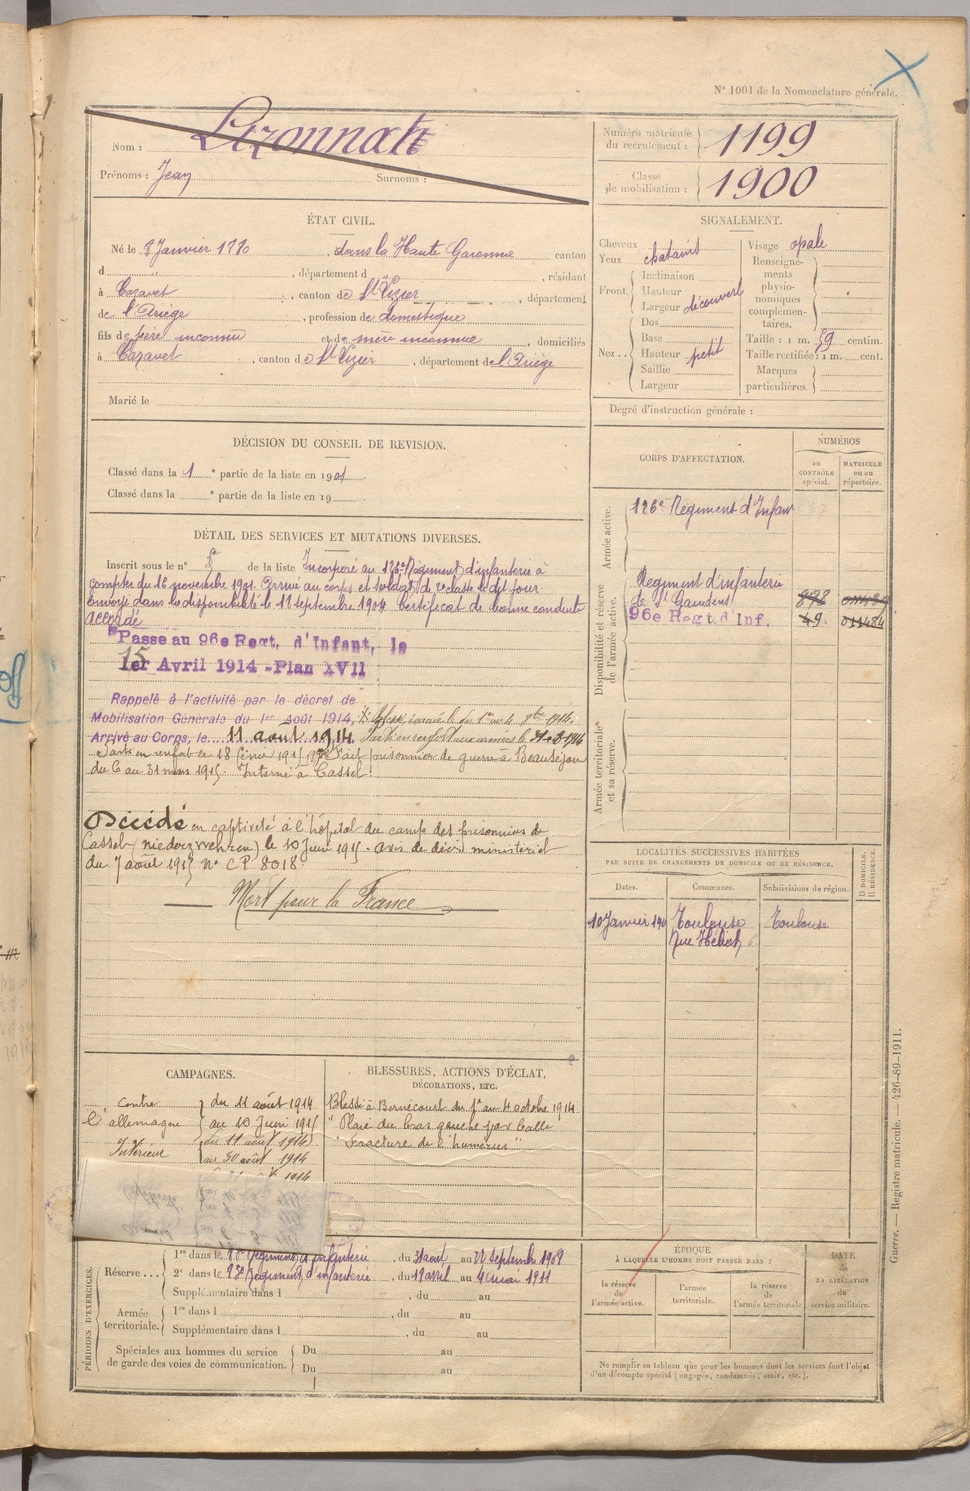 N° 1001 de la Nomenclature générale.
Nom :
Prénoms : Jean Surnoms :
Numéro matricule du recrutement : 1199
Classe de mobilisation : 1900
ÉTAT CIVIL.
Né le 8 Janvier , dans la Haute Garonne canton
d , département d , résidant
à Cazavet , canton de St Lizier , département
de l'Ariège , profession de domestique
fils de père inconnu et de mère inconnue , domiciliés
à Cazavet , canton de St Lizier , département de l'Ariège
Marié le
SIGNALEMENT.
Cheveux
Yeux chatains
Front.
Inclinaison
Hauteur
Largeur découvert
Nez..
Dos
Base
Hauteur petit
Saillie
Largeur
Visage opale
Renseignements physionomiques complémentaires.
Taille : 1 m. 59 centim.
Taille rectifiée : 1 m. cent.
Marques particulières.
Degré d'instruction générale :
DÉCISION DU CONSEIL DE REVISION.
Classé dans la 1 e partie de la liste en 1901.
Classé dans la e partie de la liste en 19
CORPS D'AFFECTATION.
NUMÉROS
au CONTRÔLE spécial.
MATRICULE ou au répertoire.
Armée active.
126e Régiment d'Infan
Disponibilité et réserve de l'armée active.
Régiment d'infanterie
de St Gaudens 878
96e Regt. d'Inf. 49 011484
Armée territoriale et sa réserve.
DÉTAIL DES SERVICES ET MUTATIONS DIVERSES.
Inscrit sous le n° de la liste Incorporé au 126e Régiment d'infanterie à
compter du 16 novembre 1901. Arrivé au corps et soldat de 2e classe le dit jour
envoyé dans la disponibilité le septembre 1904 Certificat de bonne conduite
accordé
Passe au 96e Regt. d'Infant, le
15
1er Avril 1914 - Plan XVII
Rappelé à l'activité par le décret de
Mobilisation Générale du 1er Août 1914,
Arrivé au Corps, le 11 août 1914
Parti en renfort aux armées le
Parti en renfort le 18 février 1915 Fait prisonnier de guerre à Beauséjour
du 6 au 31 mars 1915. Interné à Cassel.
Décédé en captivité à l'hôpital du camp des prisonniers de
Cassel (Niederzwehren) le 10 Juin 1915 - avis de décès ministériel
du 7 août 1915 N° CP 8018
Mort pour la France
LOCALITÉS SUCCESSIVES HABITÉES
PAR SUITE DE CHANGEMENTS DE DOMICILE OU DE RÉSIDENCE.
D. DOMICILE, R. RÉSIDENCE.
Dates. Communes. Subdivisions de région.
10 Janvier Toulouse Toulouse
Rue
CAMPAGNES.
contre du 11 août 1914
l'allemagne au 10 Juin 1915
Intérieur du 11 août 1914
au 30 août 1914
1914
BLESSURES, ACTIONS D'ÉCLAT,
DÉCORATIONS, ETC.
Blessé à Bernécourt du 1er au 4 octobre 1914
" Plaie du bras gauche par balle
Fracture de l'humérus "
PÉRIODES D'EXERCICES.
Réserve...
1re dans le Régiment d'infanterie , du 31 août au septembre 1908
2e dans le Régiment d'infanterie , du avril au 4 mai 1911
Supplémentaire dans l , du au
Armée territoriale.
1re dans l , du au
Supplémentaire dans l , du au
Spéciales aux hommes du service de garde des voies de communication.
Du au
Du au
ÉPOQUE
À LAQUELLE L'HOMME DOIT PASSER DANS :
la réserve de l'armée active.
l'armée territoriale.
la réserve de l'armée territoriale
DATE de LA LIBÉRATION du service militaire.
Ne remplir ce tableau que pour les hommes dont les services font l'objet
d'un décompte spécial (engagés, condamnés, omis, etc.).
Guerre. — Registre matricule. — 426-89-1911.